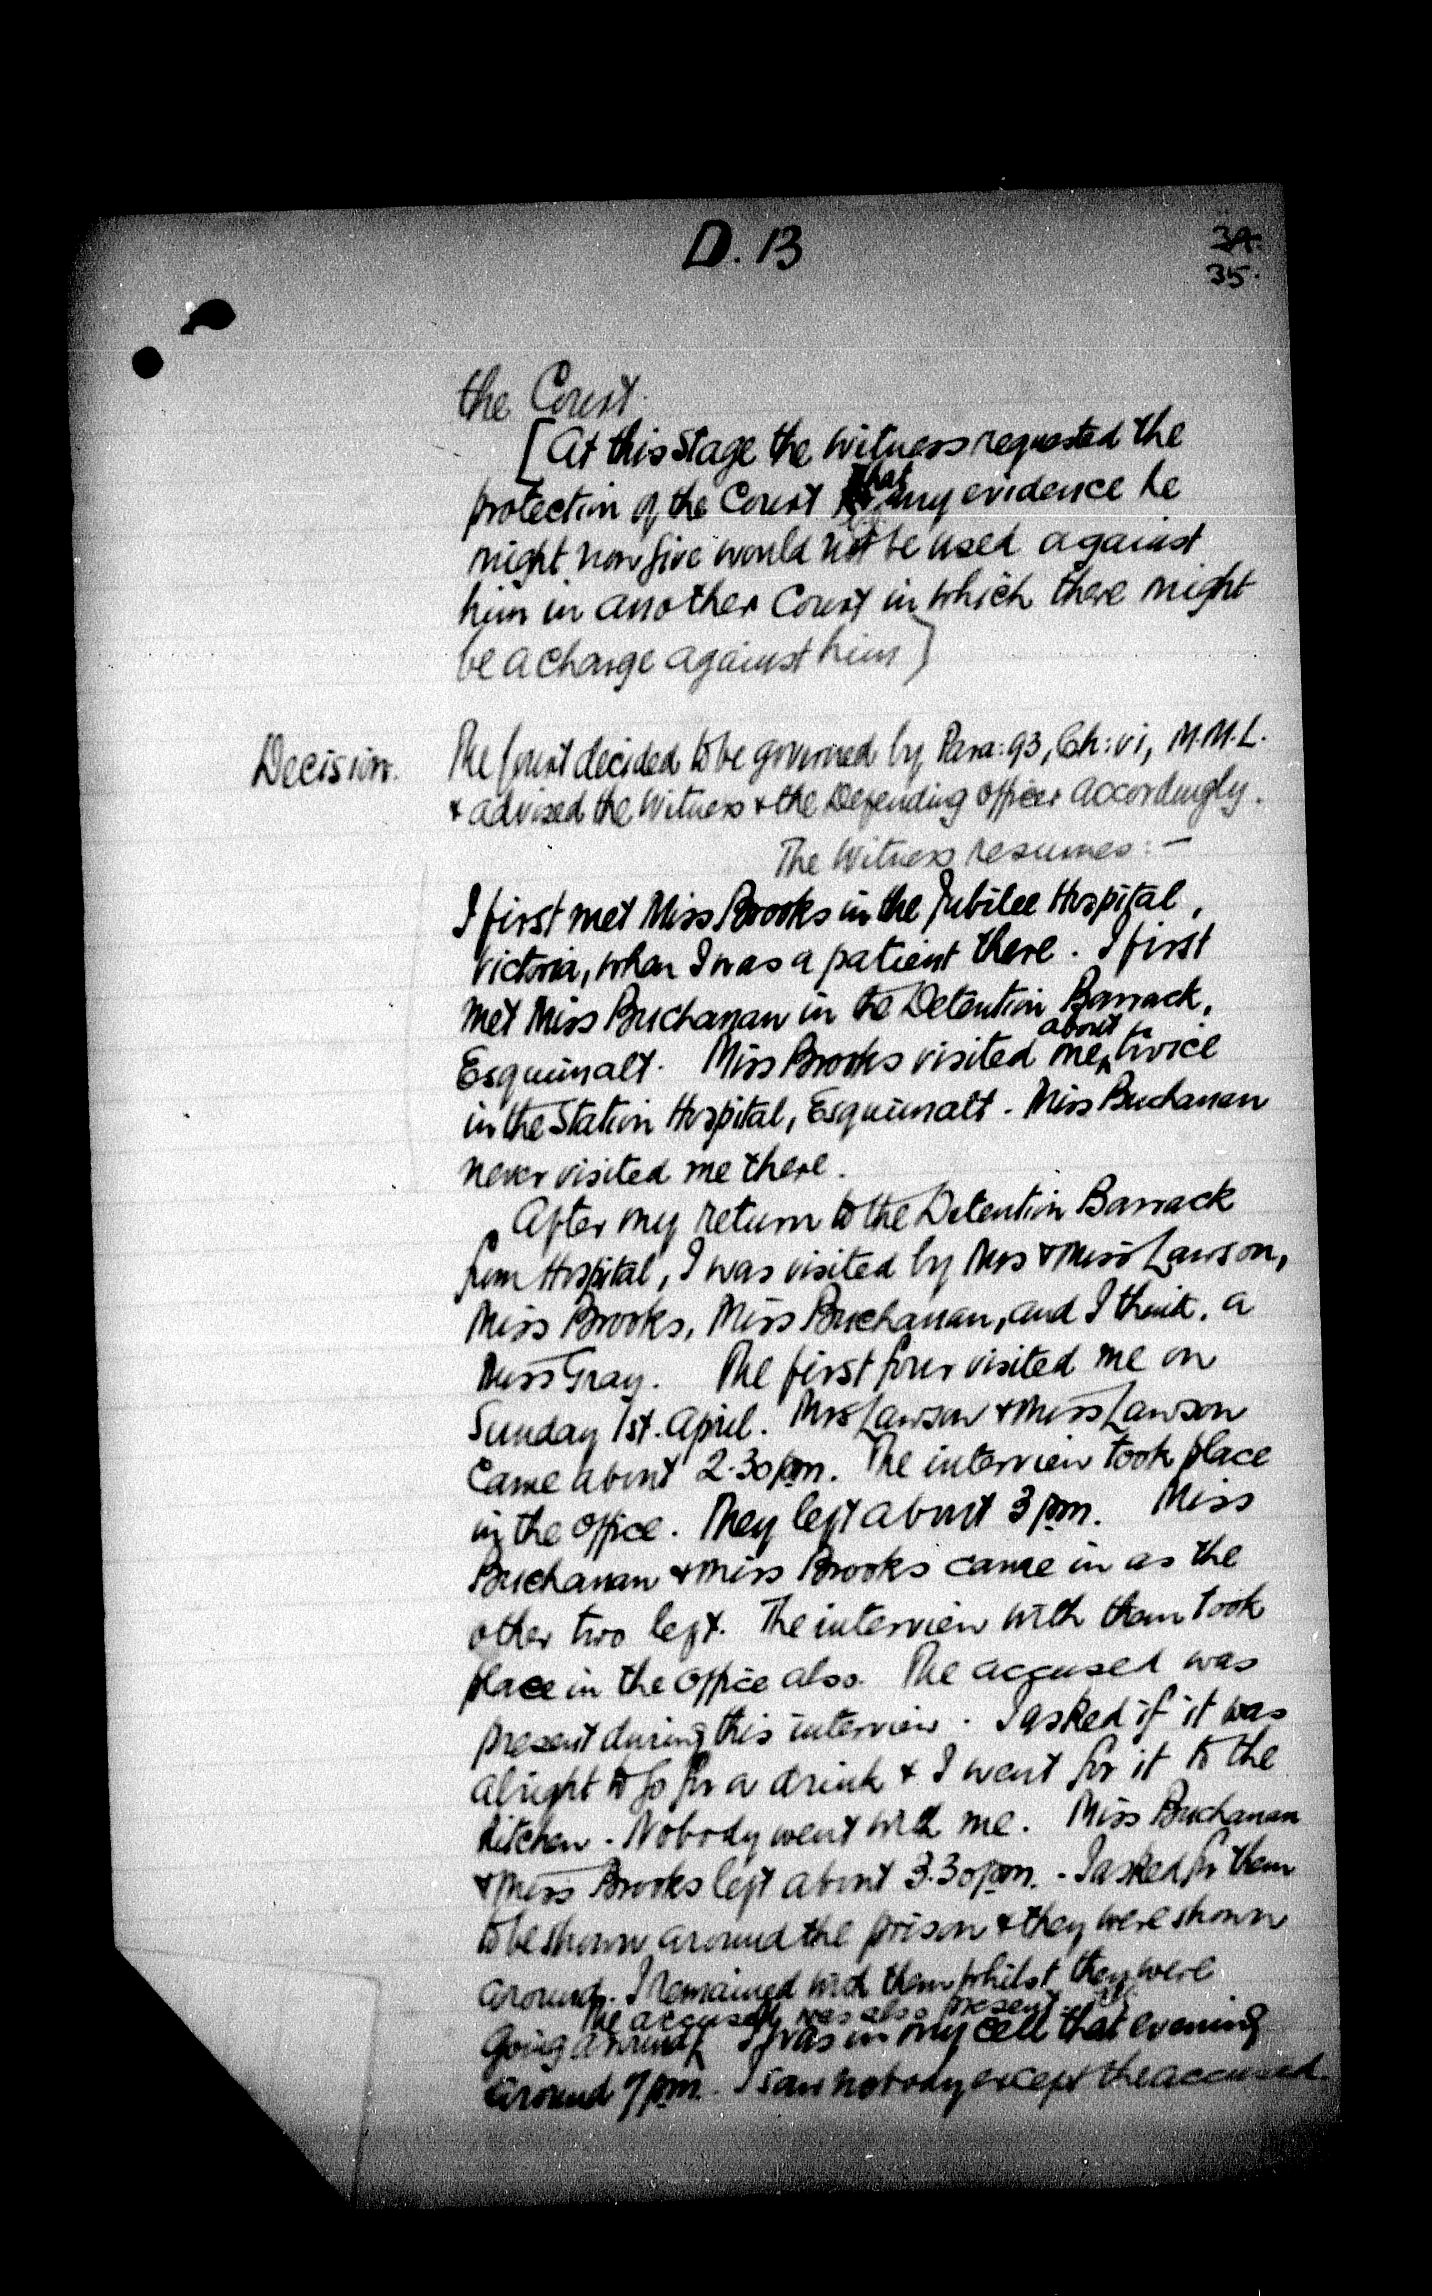 D. 13
34.
35.
the Court.
[At this stage the witness requested the
protection of the Court that any evidence he
might now give would not be used against
him in another Court in which there might
be a charge against him]
Decision. The Court decided to be governed by Para: 93, Ch: vi, M.M.L.
& advised the Witness & the Defending Officer accordingly.
The Witness resumes: —
I first met Miss Brooks in the Jubilee Hospital,
Victoria, when I was a patient there. I first
met Miss Buchanan in the Detention Barrack,
Esquimalt. Miss Brooks visited me about twice
in the Station Hospital, Esquimalt. Miss Buchanan
never visited me there.
After my return to the Detention Barrack
from Hospital, I was visited by Mrs & Miss Lawson,
Miss Brooks, Miss Buchanan, and I think, a
Miss Gray. The first four visited me on
Sunday 1st. April. Mrs Lawson & Miss Lawson
came about 2.30 pm. The interview took place
in the office. They left about 3 pm. Miss
Buchanan & Miss Brooks came in as the
other two left. The interview with them took
place in the office also. The accused was
present during this interview. I asked if it was
alright to go for a drink & I went for it to the
kitchen. Nobody went with me. Miss Buchanan
& Miss Brooks left about 3.30 pm. - I asked for them
to be shown around the prison & they were shown
around. I remained with them whilst they were
going around. The accused was also present. I was in my cell that evening
around 7 pm. I saw nobody except the accused